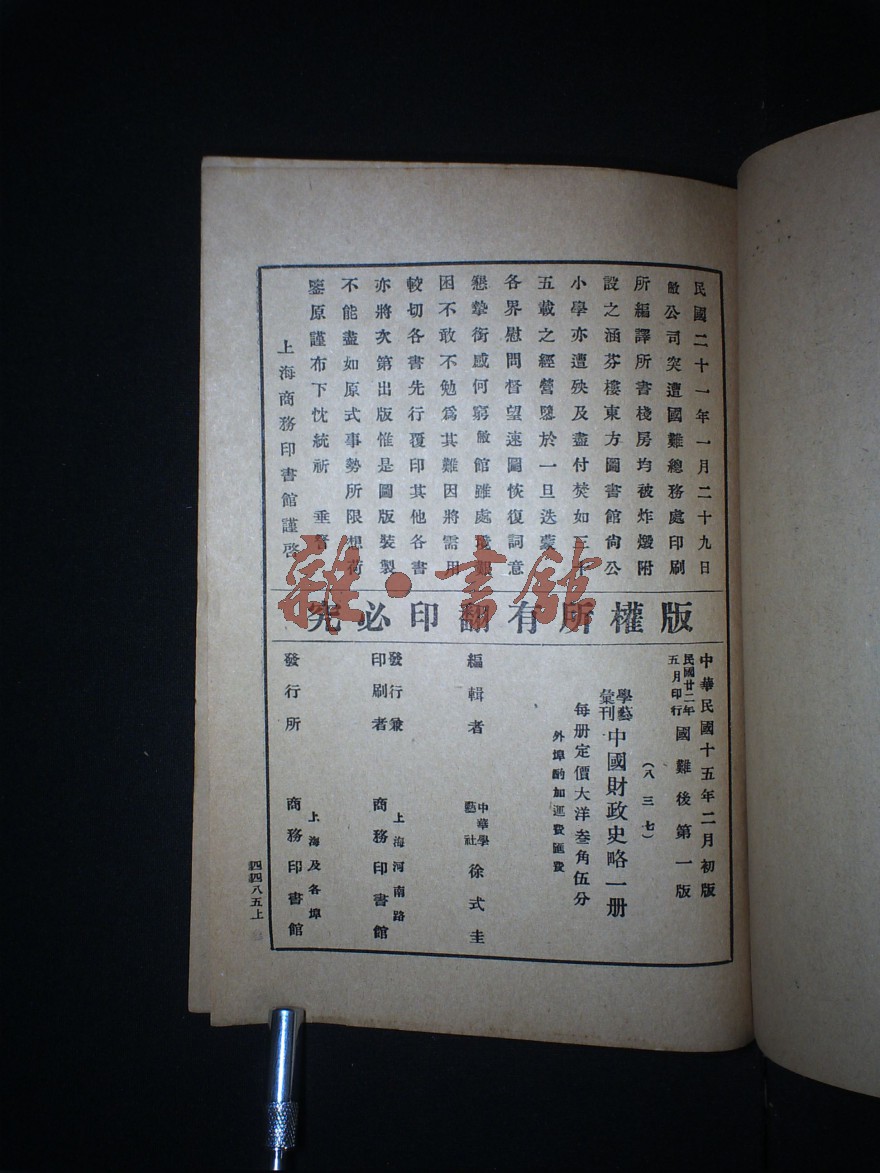 民國二十一年一月二十九日
敝公司突遭國難總務處印刷
所編譯所書棧房均被炸燬附
設之涵芬樓東方圖書館尙公
小學亦遭殃及盡付焚如三十
五載之經營隳於一旦迭蒙
各界慰問督望速圖恢復詞意
懇摯銜感何窮敝館雖處境艱
困不敢不勉爲其難因將需用
較切各書先行覆印其他各書
亦將次第出版惟是圖版裝製
不能盡如原式事勢所限想荷
鑒原謹布下忱統祈 垂詧
上海商務印書館謹啓
版權所有翻印必究
中華民國十五年二月初版
民國廿二年五月印行 國難後第一版
(八三七)
學藝彙刊 中國財政史略一册
每册定價大洋叁角伍分
外埠酌加運費匯費
編輯者 中華學藝社 徐式圭
發行兼印刷者 上海河南路 商務印書館
發行所 上海及各埠 商務印書館
四四八五上
雜·書館